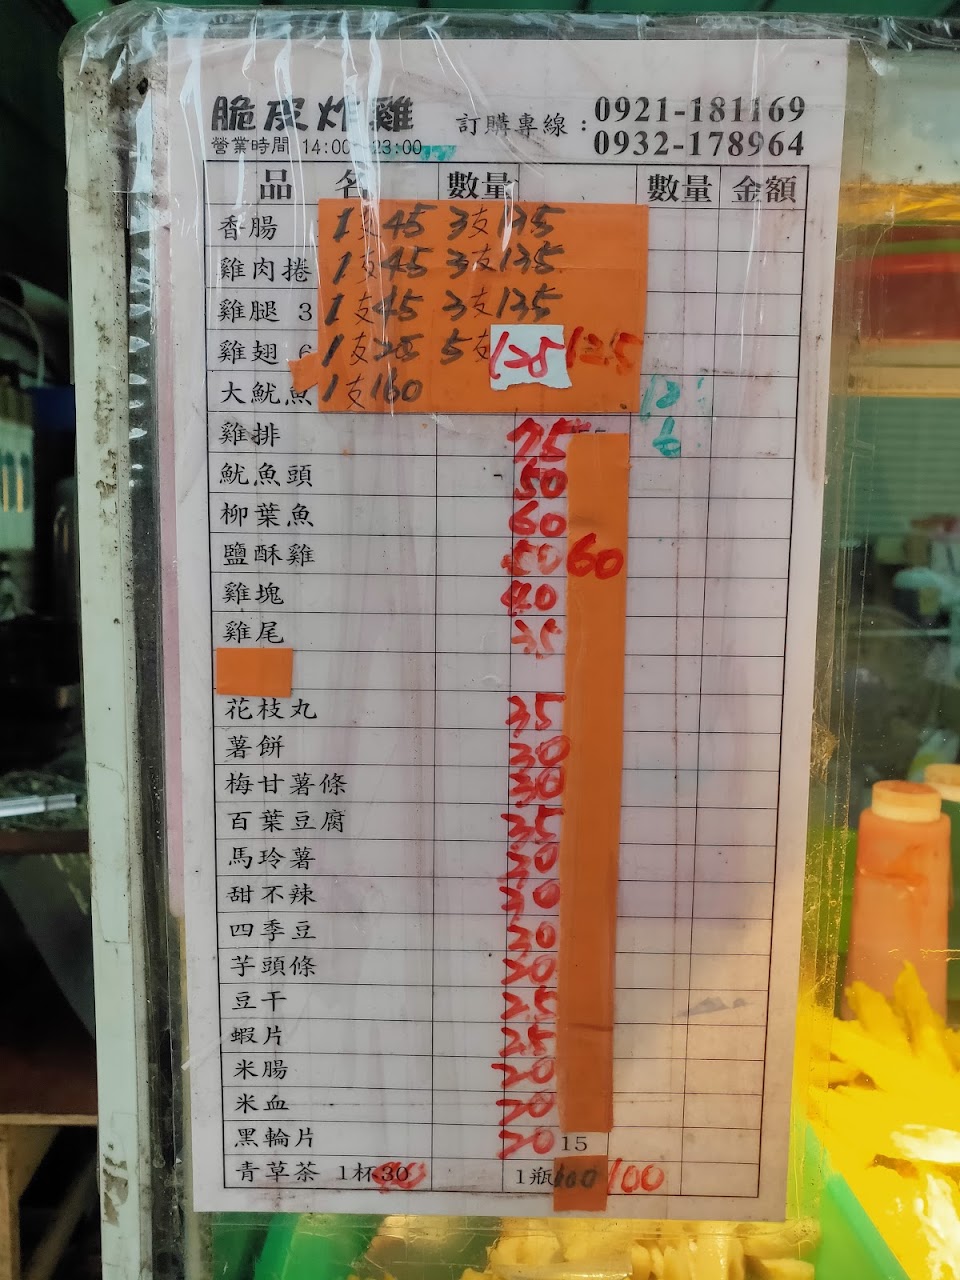 脆皮炸雞 訂購專線：0921-181169
營業時間 14:00-23:00 0932-178964
品名 數量 數量 金額
香腸 1支45 3支135
雞肉捲 1支45 3支135
雞腿 3 1支45 3支135
雞翅 6 1支25 5支125 125
大魷魚 1支160
雞排 75
魷魚頭 50
柳葉魚 60
鹽酥雞 60
雞塊 40
雞尾 35
花枝丸 35
薯餅 30
梅甘薯條 30
百葉豆腐 35
馬玲薯 30
甜不辣 30
四季豆 30
芋頭條 30
豆干 25
蝦片 25
米腸 20
米血 20
黑輪片 20 15
青草茶 1杯30 1瓶100 100